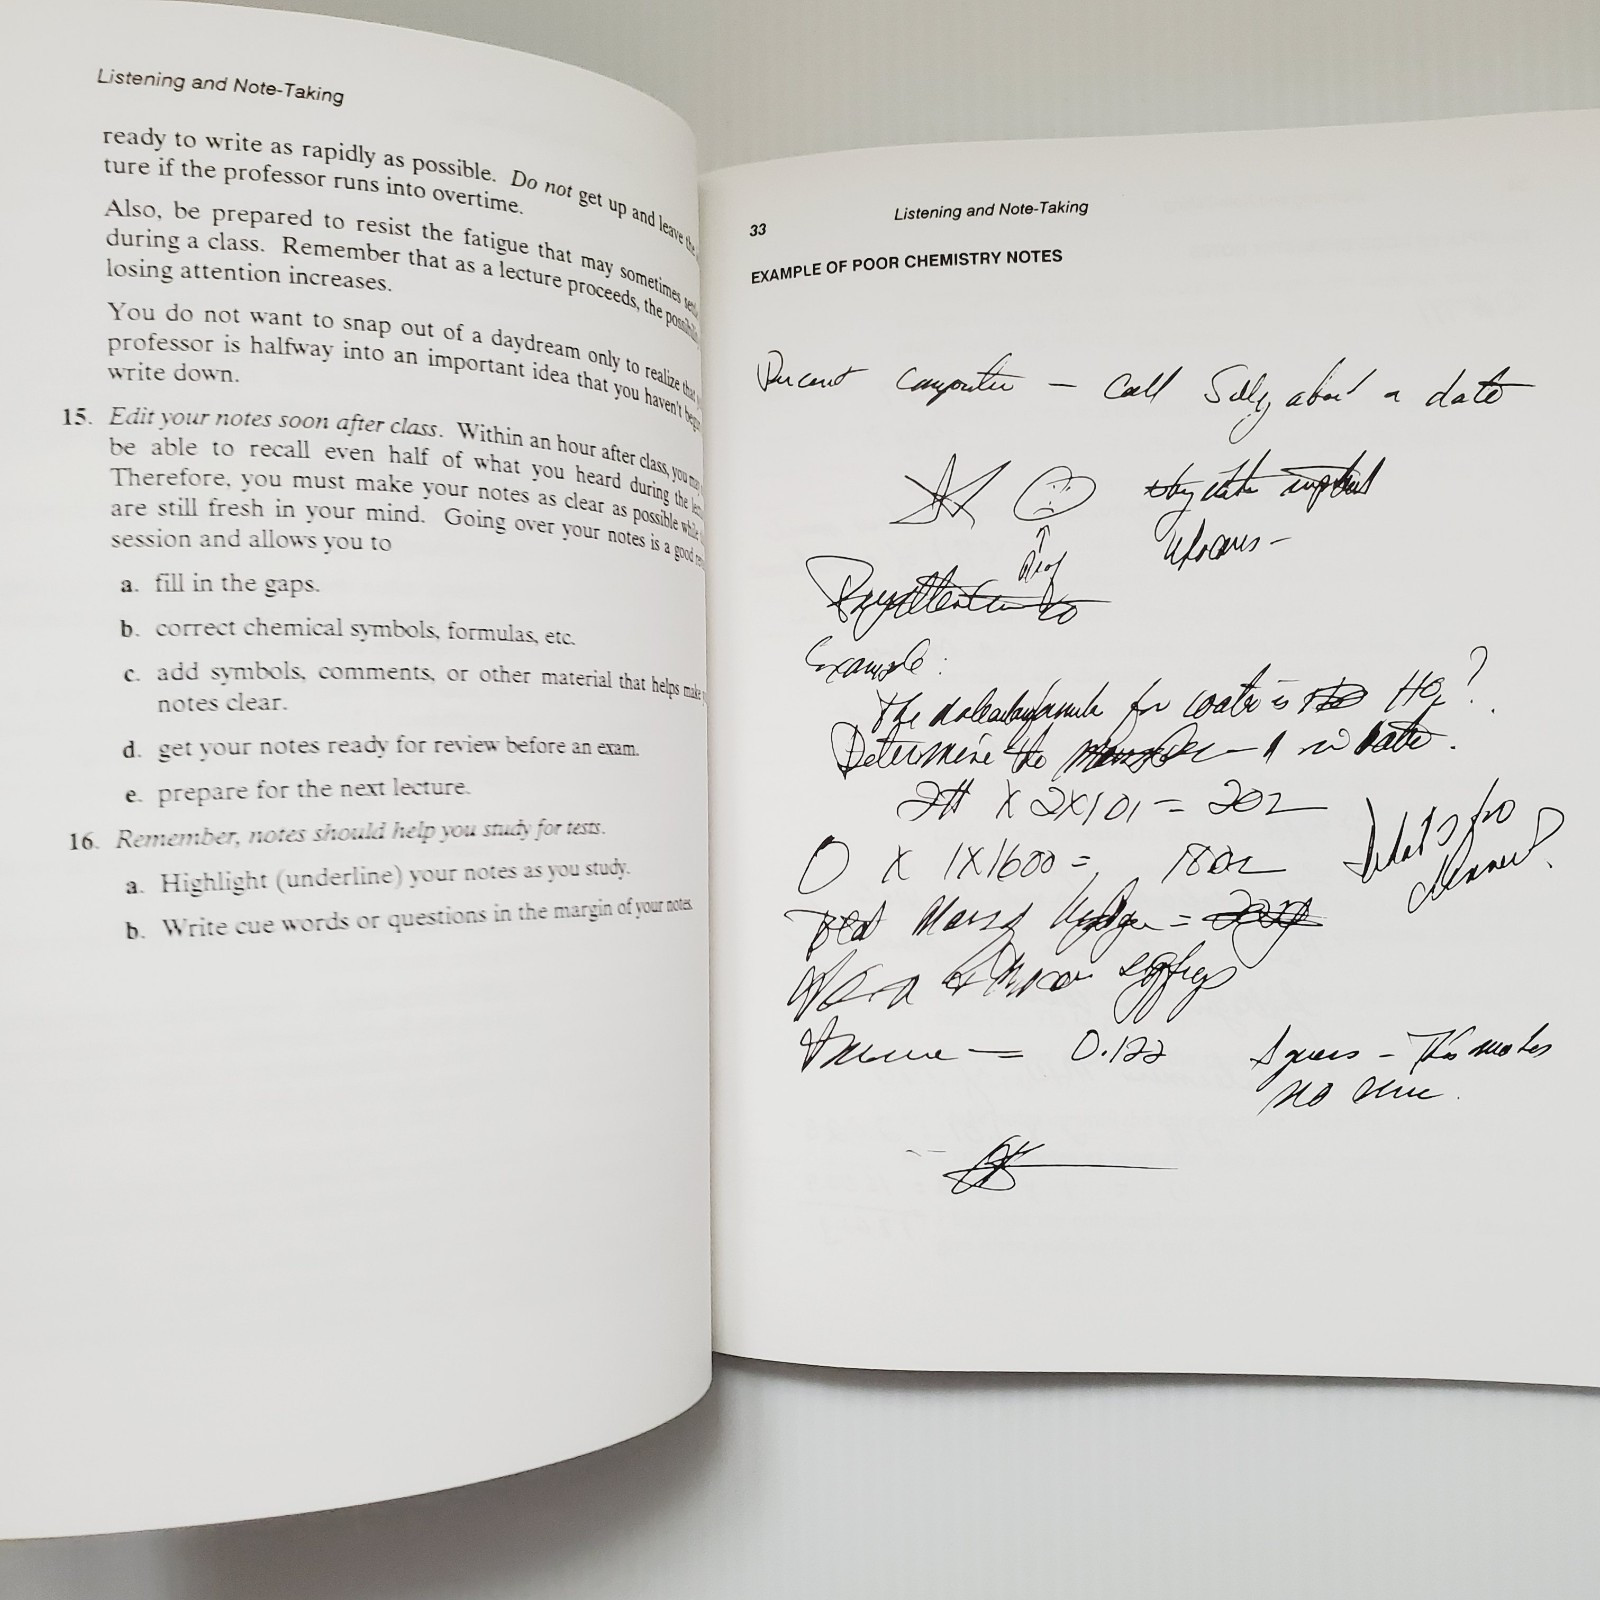 Listening and Note-Taking
ready to write as rapidly as possible. Do not get up and leave the
ture if the professor runs into overtime.
Also, be prepared to resist the fatigue that may sometimes
during a class. Remember that as a lecture proceeds, the
losing attention increases.
You do not want to snap out of a daydream only to realize
professor is halfway into an important idea that you haven't
write down.
15. Edit your notes soon after class. Within an hour after class, you may
be able to recall even half of what you heard during the
Therefore, you must make your notes as clear as possible while
are still fresh in your mind. Going over your notes is a good
session and allows you to
a. fill in the gaps.
b. correct chemical symbols, formulas, etc.
c. add symbols, comments, or other material that helps make
notes clear.
d. get your notes ready for review before an exam.
e. prepare for the next lecture.
16. Remember, notes should help you study for tests.
a. Highlight (underline) your notes as you study.
b. Write cue words or questions in the margin of your notes.
33
Listening and Note-Taking
EXAMPLE OF POOR CHEMISTRY NOTES
Percent - call Sally about a date
Who cares -
Prof
Example:
The for water is HO2?
Determine the
= 202
O X 1X1600 =
What's for
dinner?
= 0.122
I guess - This makes
no sense.